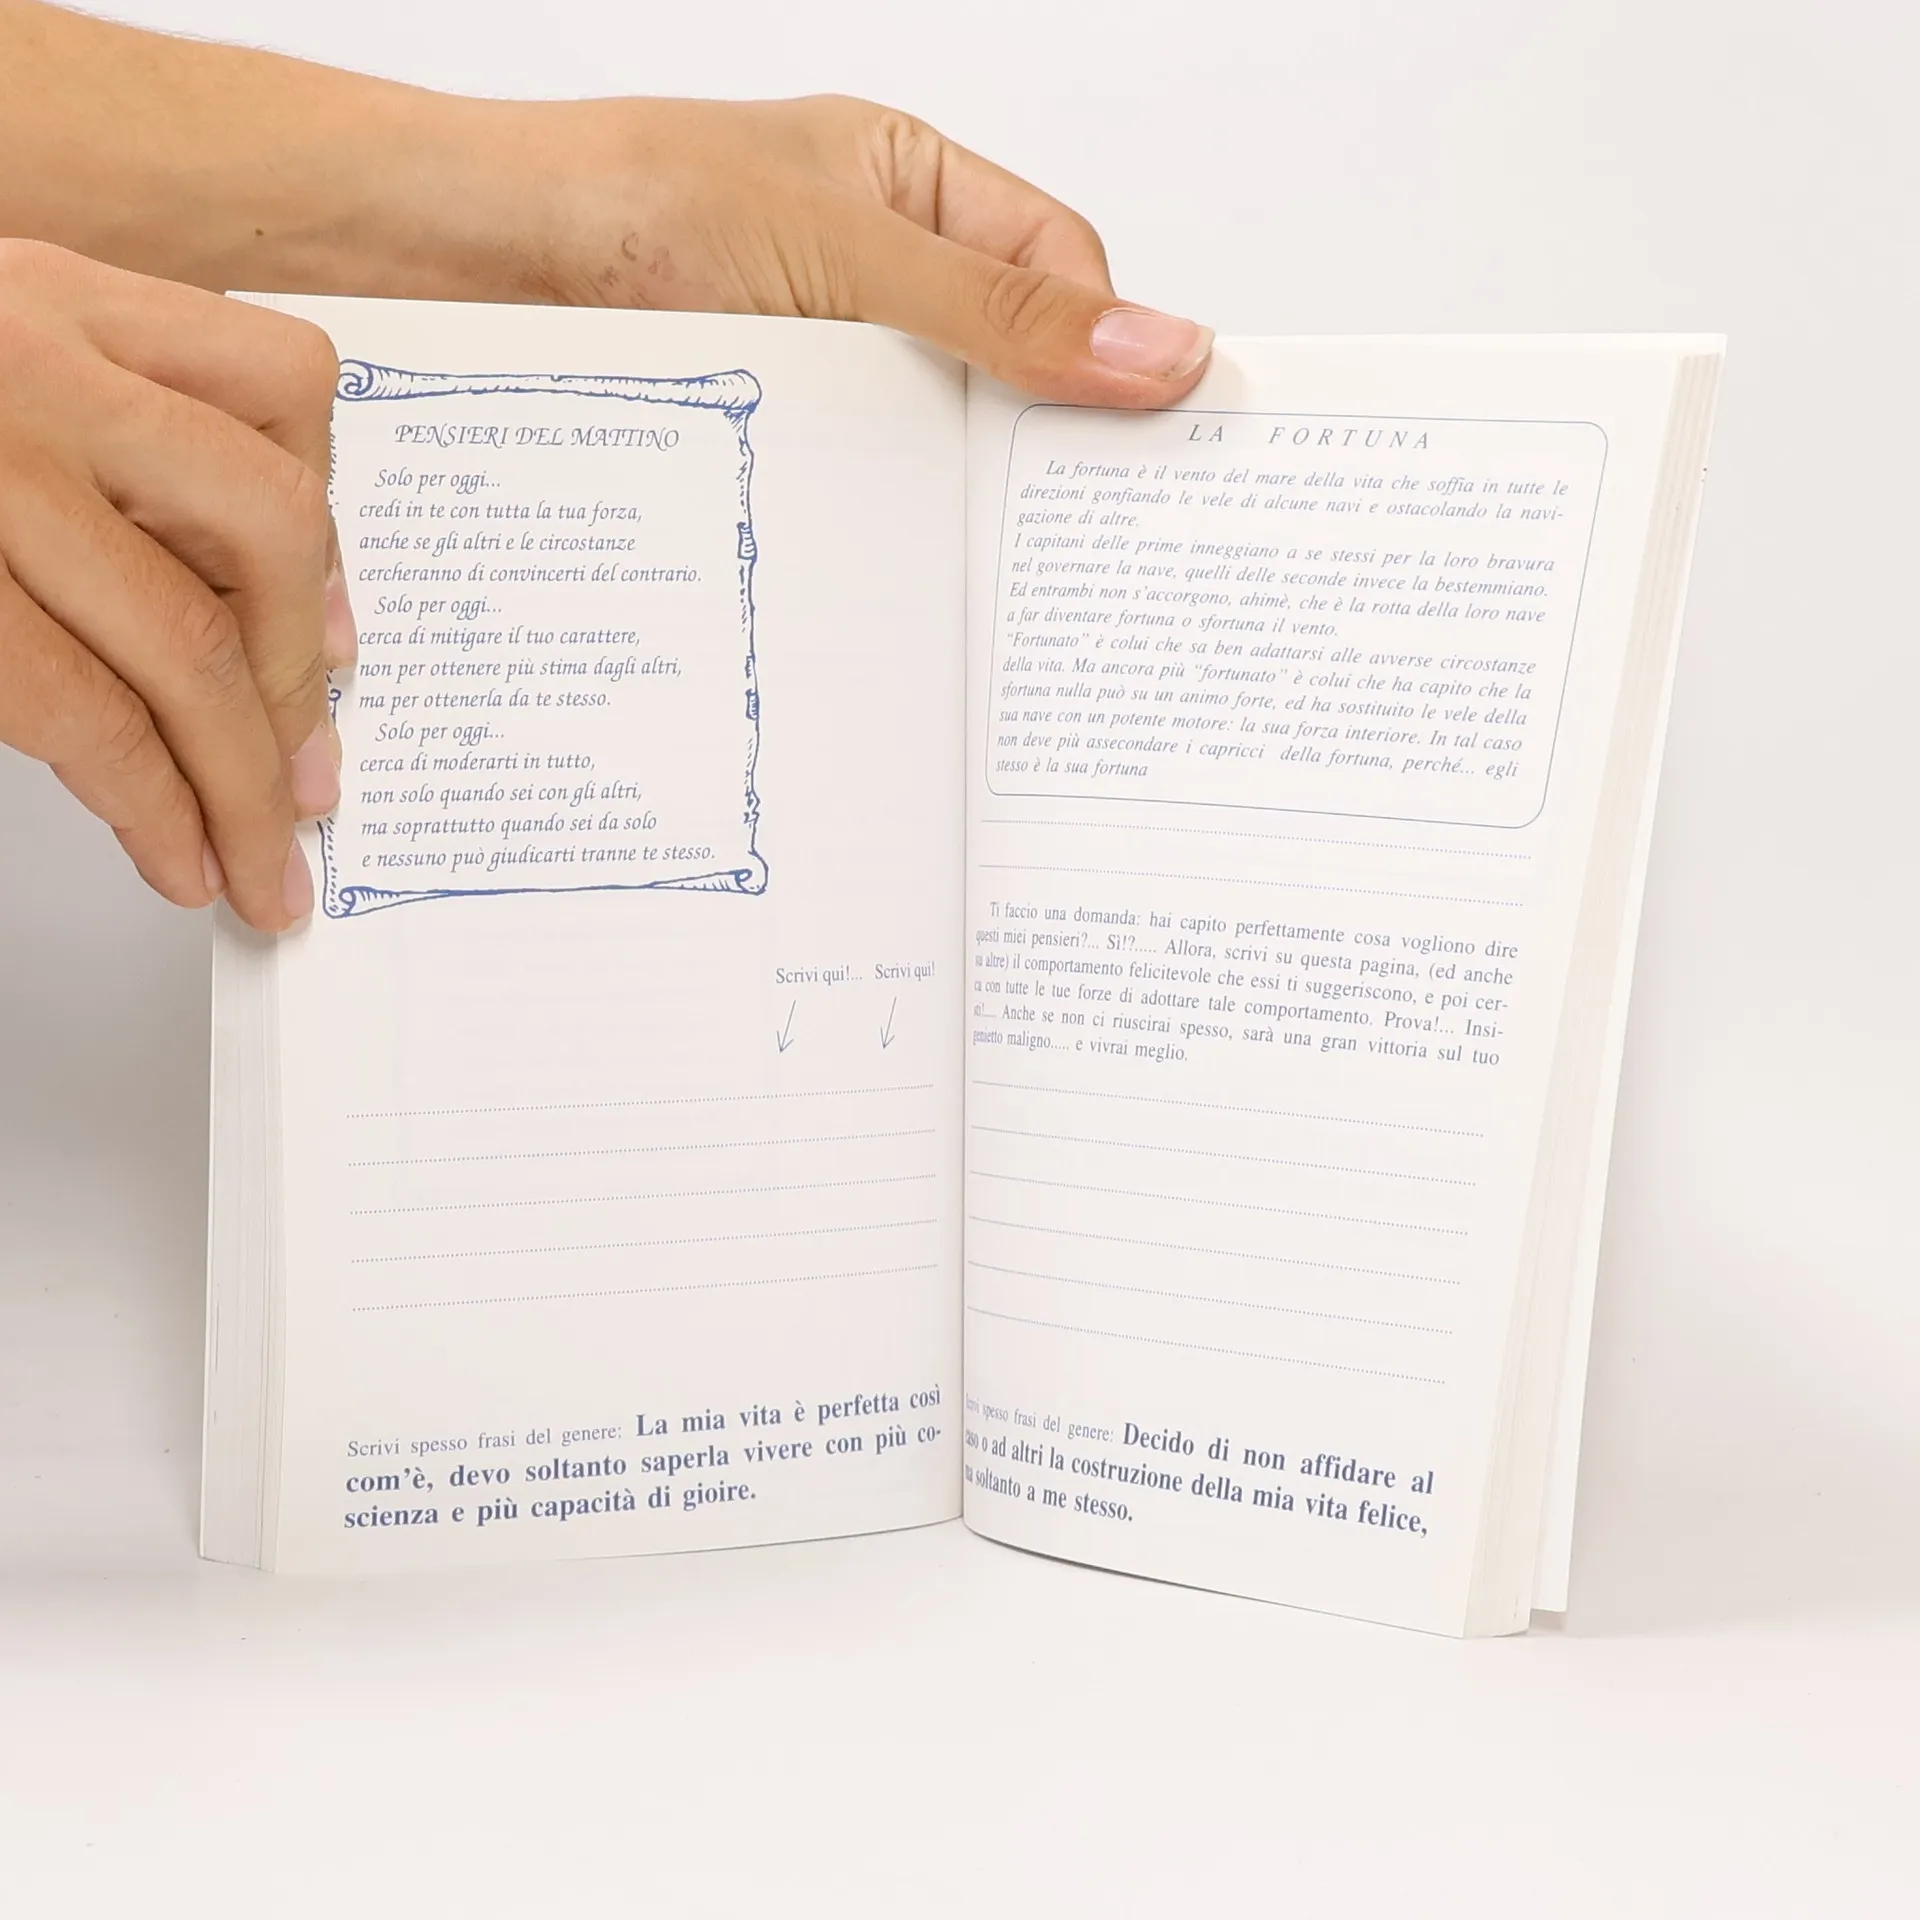 PENSIERI DEL MATTINO
Solo per oggi...
credi in te con tutta la tua forza,
anche se gli altri e le circostanze
cercheranno di convincerti del contrario.
Solo per oggi...
cerca di mitigare il tuo carattere,
non per ottenere più stima dagli altri,
ma per ottenerla da te stesso.
Solo per oggi...
cerca di moderarti in tutto,
non solo quando sei con gli altri,
ma soprattutto quando sei da solo
e nessuno può giudicarti tranne te stesso.
Scrivi qui!... Scrivi qui!
Scrivi spesso frasi del genere: La mia vita è perfetta così
com'è, devo soltanto saperla vivere con più co-
scienza e più capacità di gioire.
LA FORTUNA
La fortuna è il vento del mare della vita che soffia in tutte le
direzioni gonfiando le vele di alcune navi e ostacolando la navi-
gazione di altre.
I capitani delle prime inneggiano a se stessi per la loro bravura
nel governare la nave, quelli delle seconde invece la bestemmiano.
Ed entrambi non s'accorgono, ahimè, che è la rotta della loro nave
a far diventare fortuna o sfortuna il vento.
"Fortunato" è colui che sa ben adattarsi alle avverse circostanze
della vita. Ma ancora più "fortunato" è colui che ha capito che la
sfortuna nulla può su un animo forte, ed ha sostituito le vele della
sua nave con un potente motore: la sua forza interiore. In tal caso
non deve più assecondare i capricci della fortuna, perché... egli
stesso è la sua fortuna
Ti faccio una domanda: hai capito perfettamente cosa vogliono dire
questi miei pensieri?... Sì!?..... Allora, scrivi su questa pagina, (ed anche
su altre) il comportamento felicitevole che essi ti suggeriscono, e poi cer-
ca con tutte le tue forze di adottare tale comportamento. Prova!... Insi-
sti!... Anche se non ci riuscirai spesso, sarà una gran vittoria sul tuo
genietto maligno..... e vivrai meglio.
spesso frasi del genere: Decido di non affidare al
caso o ad altri la costruzione della mia vita felice,
ma soltanto a me stesso.